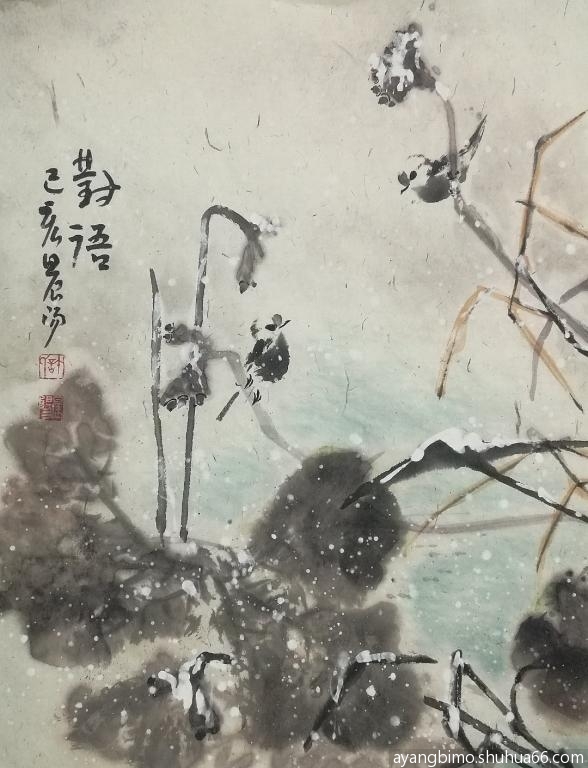 對語
己亥晨阳
ayangbimo.shuhua66.com